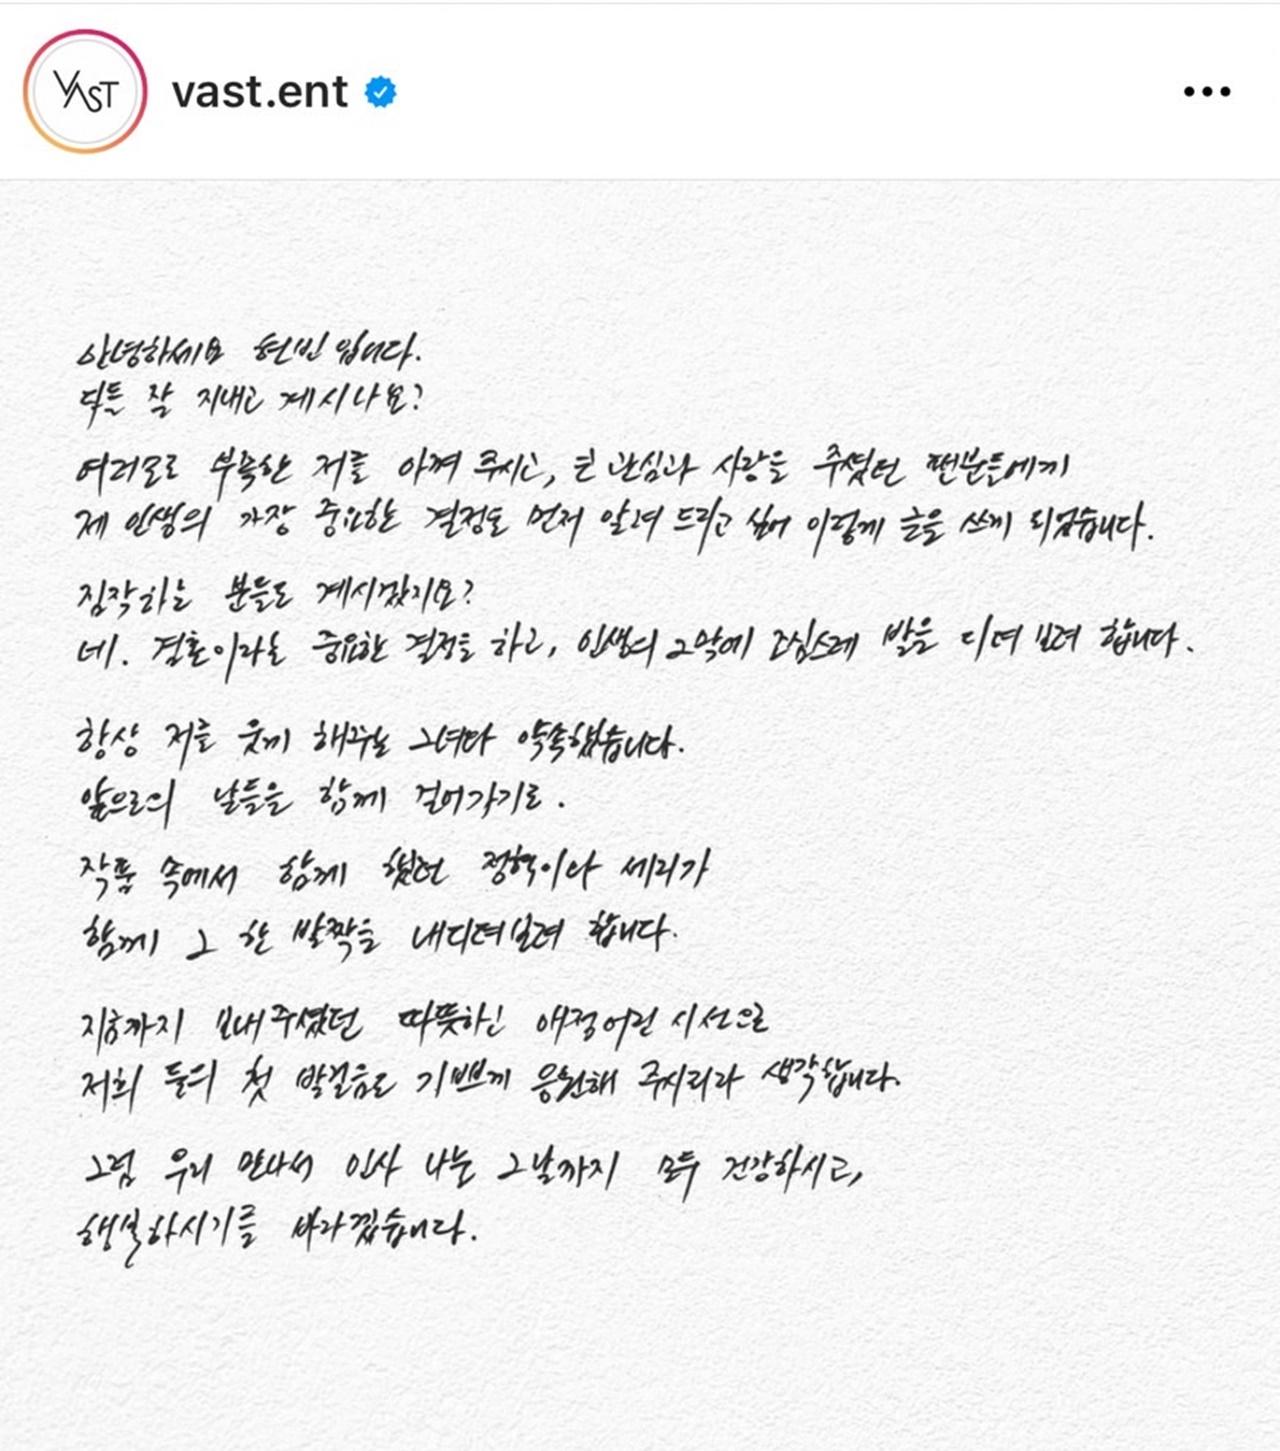 VAST
vast.ent
안녕하세요 현빈입니다.
다들 잘 지내고 계시나요?
여러모로 부족한 저를 아껴 주시고, 큰 관심과 사랑을 주셨던 팬분들에게
제 인생의 가장 중요한 결정을 먼저 알려 드리고 싶어 이렇게 글을 쓰게 되었습니다.
짐작하는 분들도 계시겠지요?
네. 결혼이라는 중요한 결정을 하고, 인생의 2막에 조심스레 발을 디뎌 보려 합니다.
항상 저를 웃게 해주는 그녀와 약속했습니다.
앞으로의 날들을 함께 걸어가기로.
작품 속에서 함께 했던 정혁이와 세리가
함께 그 한 발짝을 내디뎌보려 합니다.
지금까지 보내주셨던 따뜻하신 애정어린 시선으로
저희 둘의 첫 발걸음도 기쁘게 응원해 주시리라 생각합니다.
그럼 우리 만나서 인사 나눌 그날까지 모두 건강하시고,
행복하시기를 바라겠습니다.